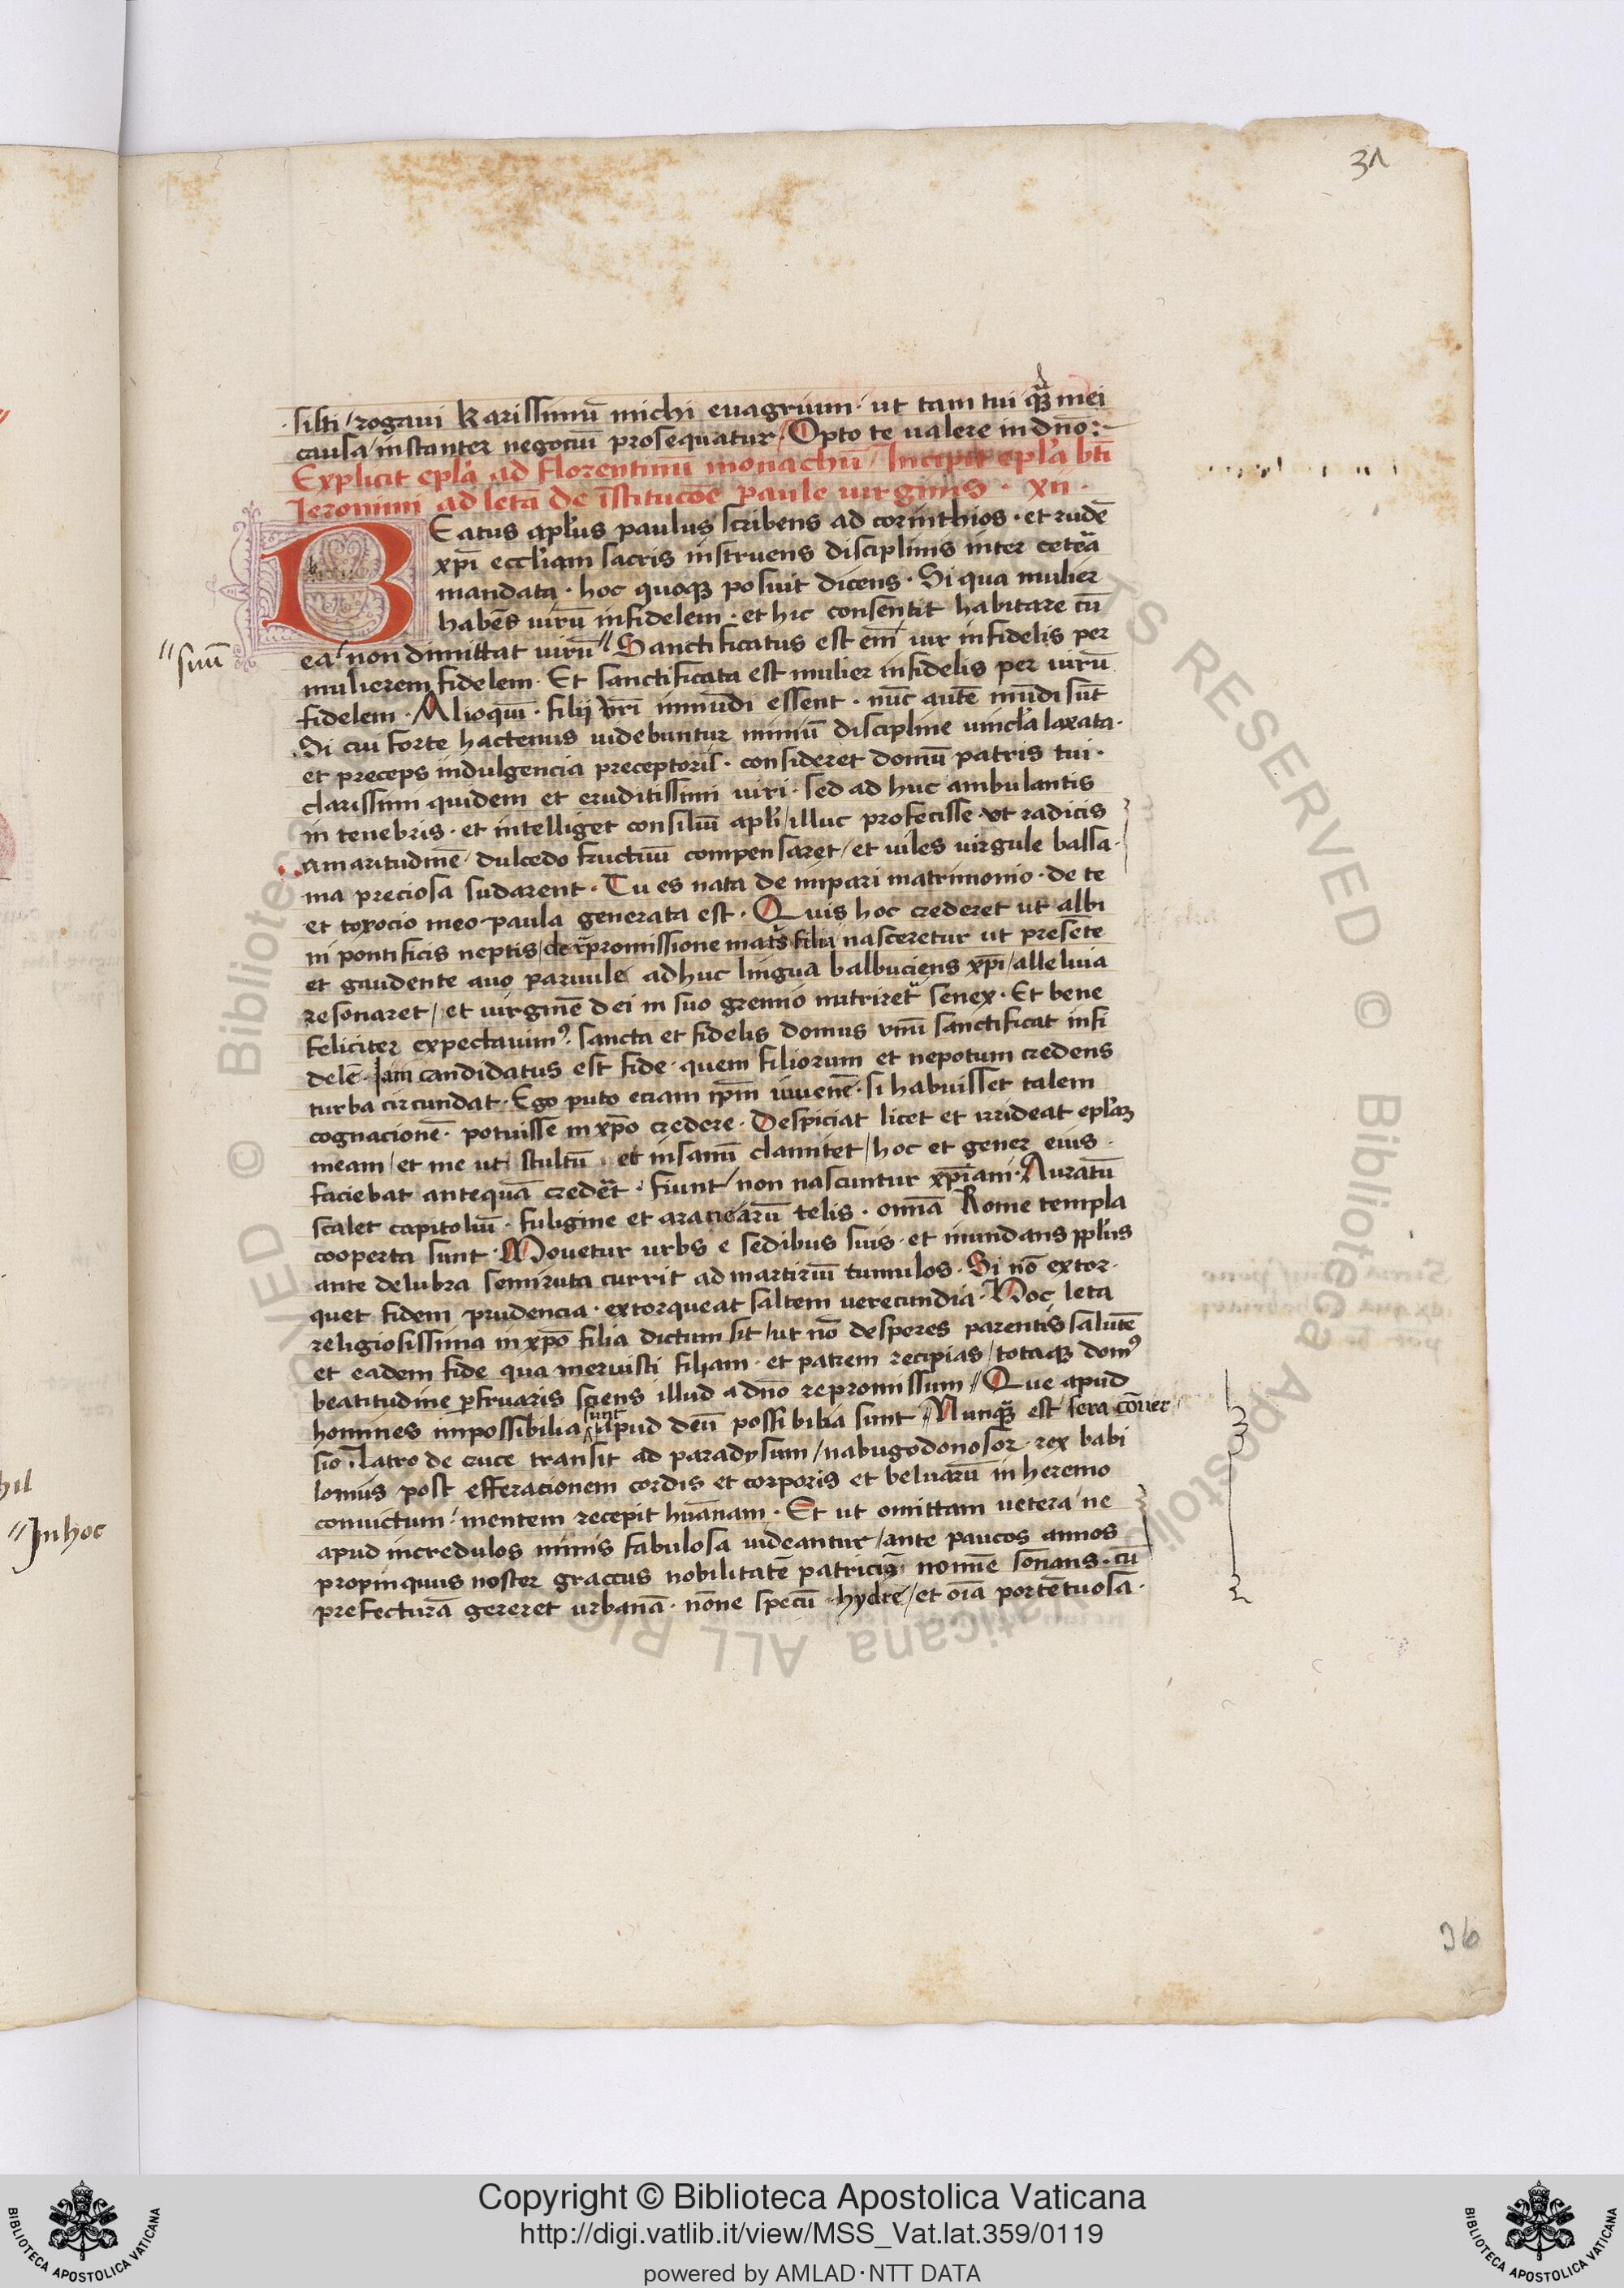 31
sisti / rogaui karissimū michi euagrium ut tam tui qꝫ mei
causa / instanter negociū prosequatur / Opto te ualere in dn̄o :-
Explicit epl̄a ad florentinū monachū / Incipit epl̄a bt̄i
Ieronimi ad letā de īstitucōe paule uirginis · xii ·
BEatus apl̄us paulus scribens ad corinthios · et rudē
xp̄i eccl̄iam sacris instruens disciplinis inter cetera
mandata · hoc quoqꝫ posuit dicens · Si qua mulier
habēs uirū infidelem · et hic consentit habitare cū
ea / non dimittat uirū // Sanctificatus est em̄ uir infidelis per
// suū
mulierem fidelem · Et sanctificata est mulier infidelis per uirū
fidelem · Alioquī · filij vr̄i inmūdi essent · nūc autē mūdi sūt
Si cui forte hactenus uidebuntur nimiū discipline uincl̄a laxata ·
et preceps indulgencia preceptoris · consideret domū patris tui ·
clarissimi quidem et eruditissimi uiri · sed ad huc ambulantis
in tenebris · et intelliget consiliū apl̄i / illuc profecisse ut radicis
amaritudinē dulcedo fructuū compensaret / et uiles uirgule balsa
ma preciosa sudarent · Tu es nata de impari matrimonio · de te
et toxocio meo paula generata est · Quis hoc crederet ut albi
ni pontificis neptis / de repromissione matris filia nasceretur ut presēte
et gaudente auo paruule adhuc lingua balbuciens xp̄i / alleluia
resonaret / et uirginē dei in suo gremio nutriret senex · Et bene
feliciter expectauimꝰ · sancta et fidelis domus vnū sanctificat infi
delē · Iam candidatus est fide · quem filiorum et nepotum credens
turba circundat · Ego puto eciam ip̄m iuuenē · si habuisset talem
cognacionē · potuisse in xp̄o credere · Despiciat licet et irrideat epl̄am
meam / et me uti stultū · et insanū clamitet / hoc et gener eius ·
faciebat antequā crederet · fiunt / non nascuntur xp̄iani · Auratū
scalet capitoliū · fuligine et aranearū telis · omnia Rome templa
cooperta sunt · Mouetur urbs e sedibus suis · et inundans ppl̄us
ante delubra semiruta currit ad martirū tumulos · Si nō extor
quet fidem prudencia · extorqueat saltem uerecundia · Hoc leta
religiosissima in xp̄o filia dictum sit / ut nō desperes parentis salutē
et eadem fide qua meruisti filiam · et patrem recipias / totaqꝫ domꝰ
beatitudine ꝑfruaris sciens illud a dn̄o repromissum // Que apud
homines impossibilia sunt apud deū possibilia sunt // Nunqꝫ est sera cōuer
sio · Latro de cruce transit ad paradysum / nabugodonosor · rex babi
lonius post efferacionem cordis et corporis et beluarū in heremo
conuictum / mentem recepit humanam · Et ut omittam uetera / ne
apud incredulos nimis fabulosa uideantur / ante paucos annos
propinquus noster graccus nobilitatē patriciā nomīe sonans · cū
prefecturā gereret urbanā · nōne specū hydre / et oīa portētuosa ·
hil
// In hoc
36
Copyright © Biblioteca Apostolica Vaticana
http://digi.vatlib.it/view/MSS_Vat.lat.359/0119
powered by AMLAD·NTT DATA
BIBLIOTECA APOSTOLICA VATICANA
BIBLIOTECA APOSTOLICA VATICANA